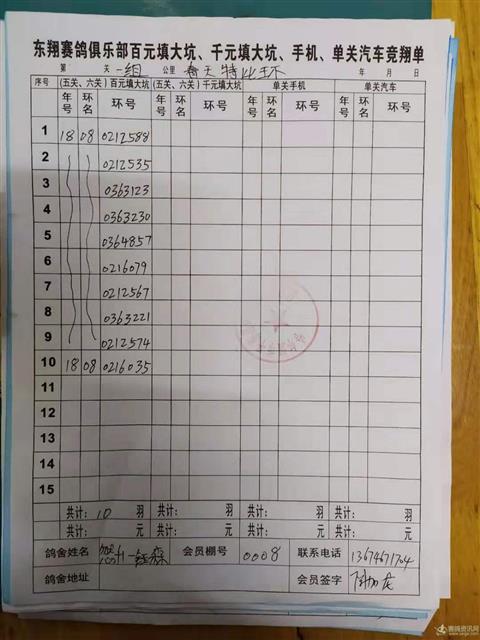 东翔赛鸽俱乐部百元填大坑、千元填大坑、手机、单关汽车竞翔单
第 关 一组 公里 春天特比环 年 月 日
序号 (五关、六关)百元填大坑 (五关、六关)千元填大坑 单关手机 单关汽车
年号 环名 环号 年号 环名 环号 年号 环名 环号 年号 环名 环号
1 18 08 0212588
2 0212535
3 0363123
4 0363230
5 0364857
6 0216079
7 0212567
8 0363221
9 0212574
10 18 08 0216035
11
12
13
14
15
共计: 10 羽 共计: 羽 共计: 羽 共计: 羽
共计: 元 共计: 元 共计: 元 共计: 元
鸽舍姓名 会员棚号 0008 联系电话 13674671704
鸽舍地址 会员签字
赛鸽资讯网